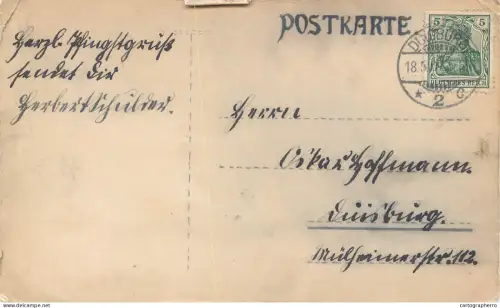 POSTKARTE
Herzl. Pfingstgruß
sendet Dir
Herbert Schulder.
DUISBURG
18.5.
* 2 c
5 5
DEUTSCHES REICH
Herrn
Oskar Hoffmann.
Duisburg.
Mülheimerstr. 112.
www.delcampe.net
cartographerro